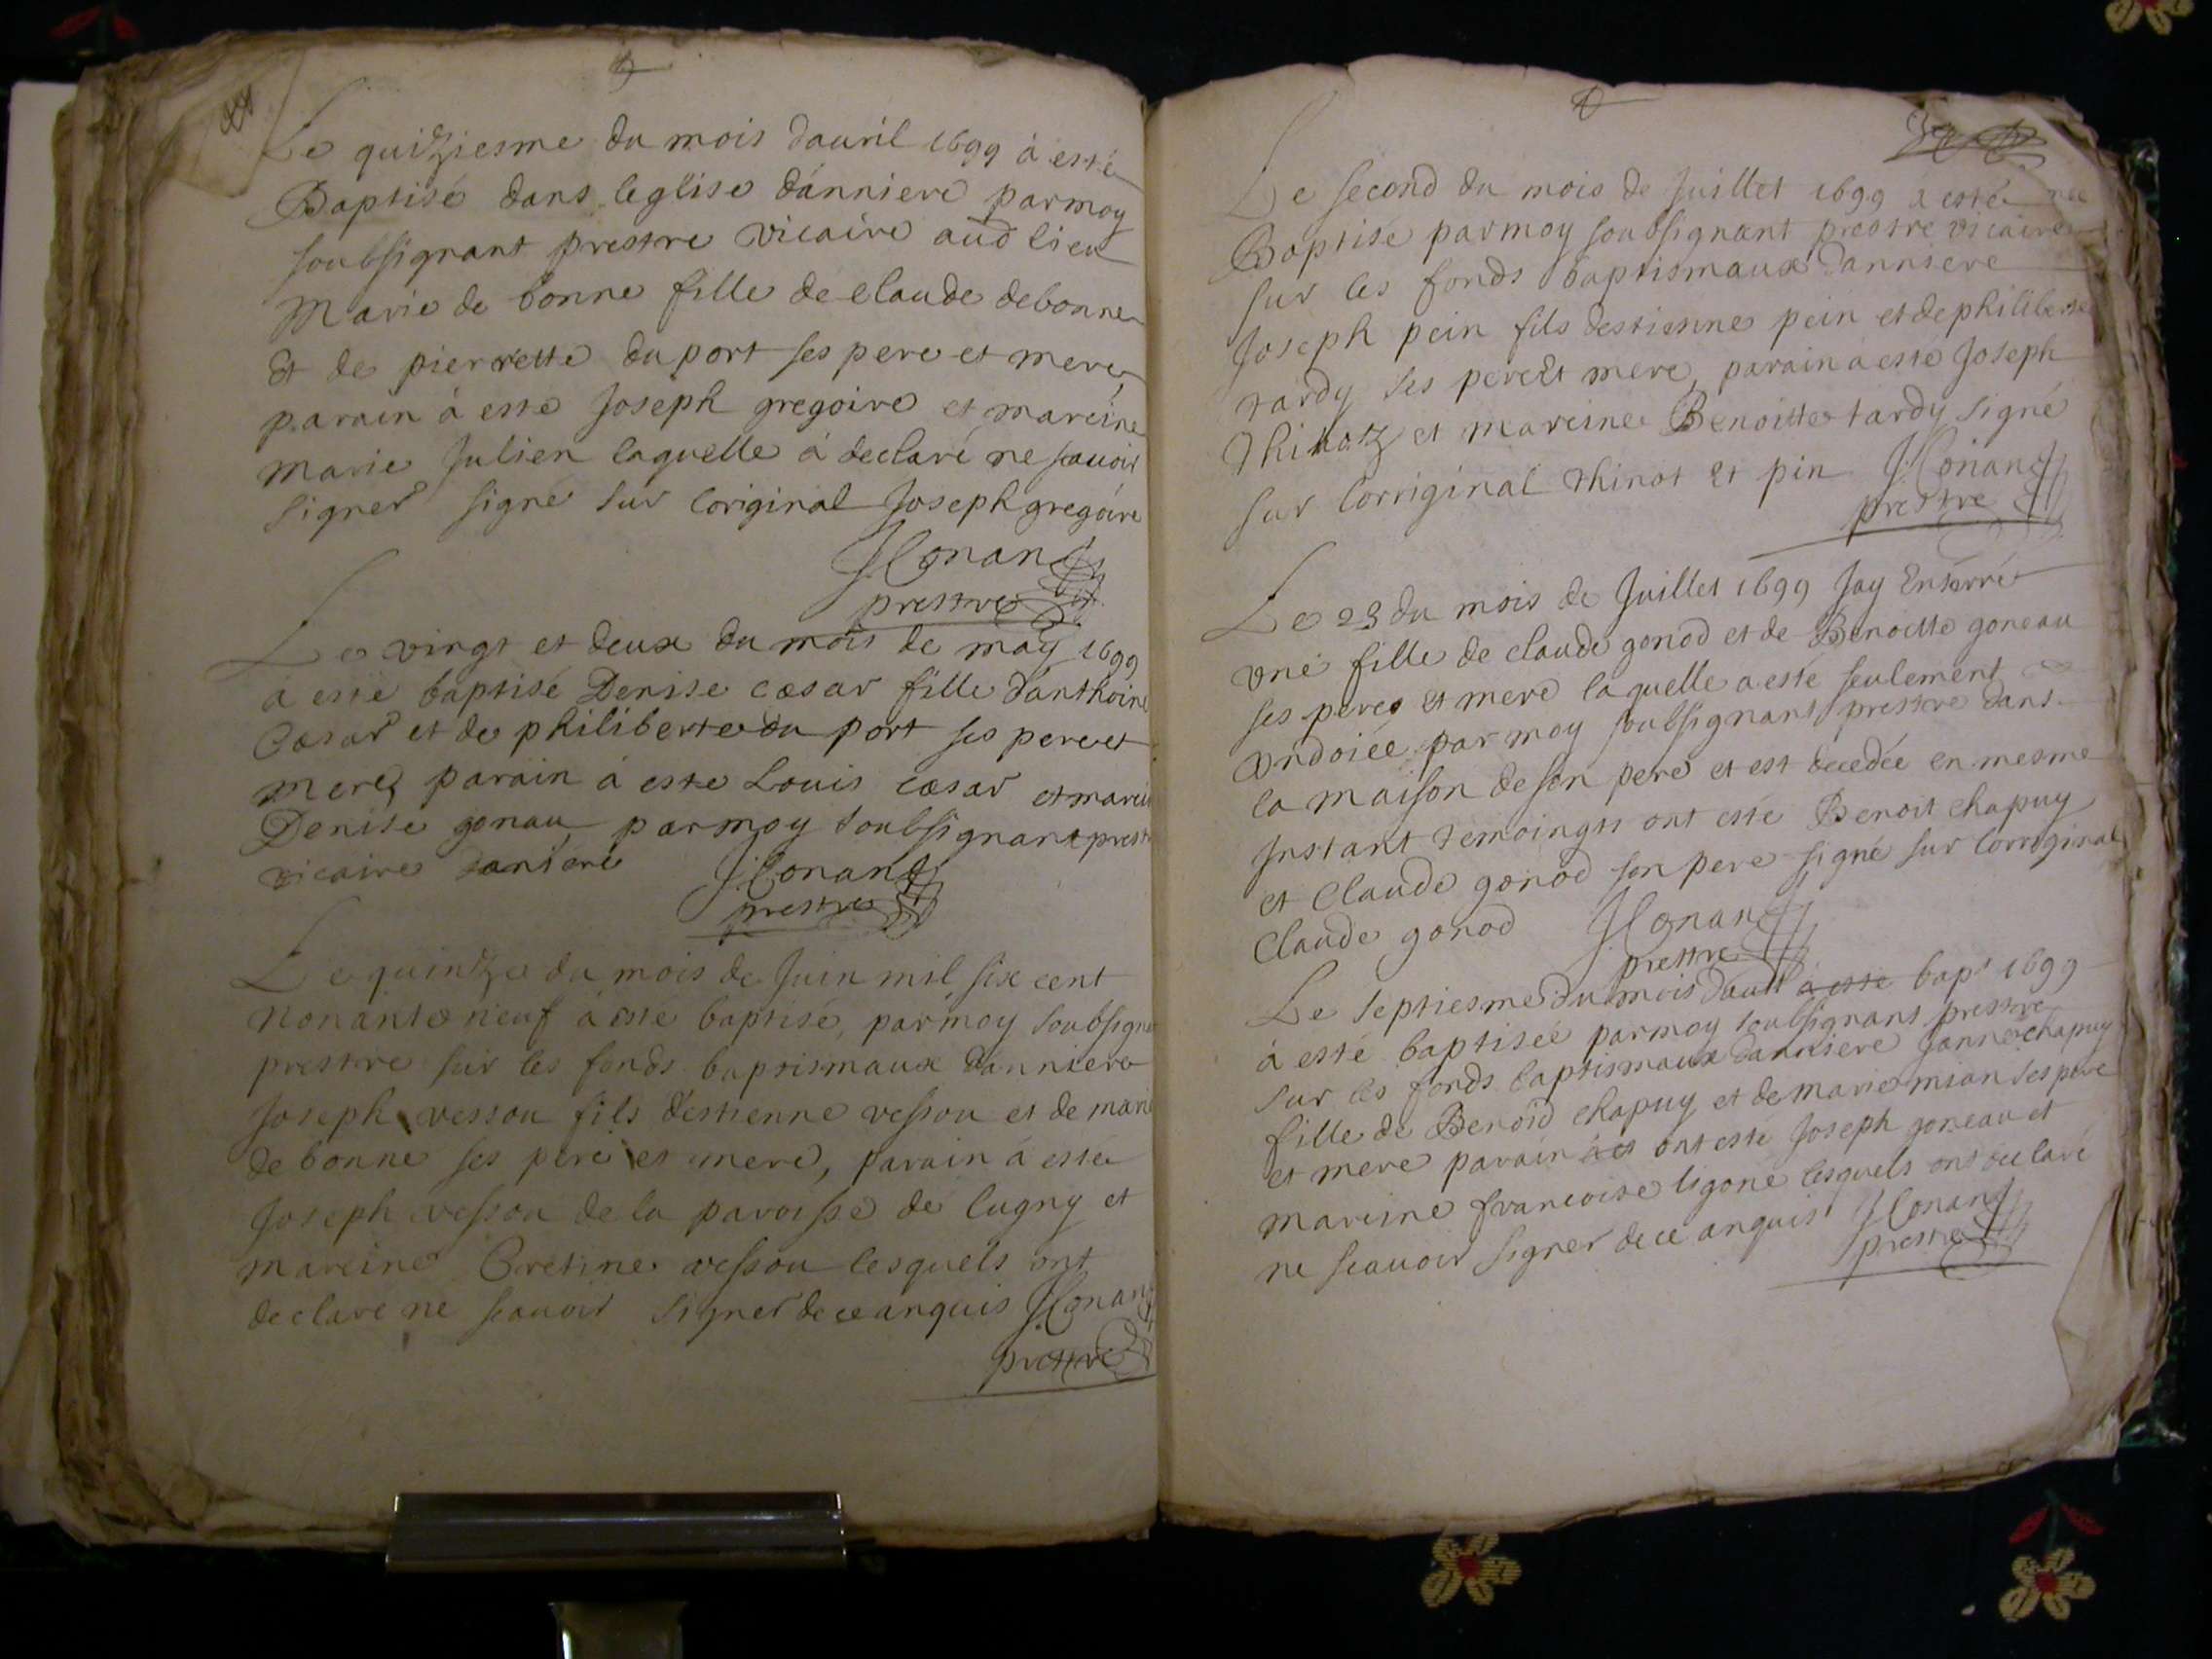 Le quiziesme du mois dauril 1699 à esté
Baptisé dans leglise dánniere parmoy
soubsignant prestre vicaire aud lieu
Marie de bonne fille de claude debonne
Et de pierrette du port ses pere et mere,
parain à esté Joseph gregoire et mareine
marie Julien laquelle à declaré ne scauoir
signer signé sur loriginal Joseph gregoire
JConand
prestre
Le vingt et deux du mois de may 1699
à esté baptisé Denise cæsar fille danthoine
Cæsar et de philiberte du port ses pere et
mere, parain à este Louis cæsar et marei
Denise gonau parmoy soubsignant prest
vicaire daniere JConand
prestre
Le quintze du mois de Juin mil six cent
Nonante neuf à esté baptisé, parmoy soubsigné
prestre sur les fonds baptismaux dánniere
Joseph vessou fils destienne vessou et de marie
de bonne ses pere et mere, parain à esté
Joseph vessou de la paroisse de lugny et
mareine Cretine vessou lesquels ont
declare ne scauoir signer de ce anquis JConand
prestre
Le second du mois de Juillet 1699 à esté
Baptisé parmoy soubsignant prestre vicaire
sur les fonds baptismaux danniere
Joseph pein fils destienne pein et de philiberte
tardy ses pere Et mere, parain à esté Joseph
Thinotz et mareine Benoitte tardy signé
sur lorriginal thinot Et pin JConand
prestre
Le 23 du mois de Juillet 1699 Jay Enterré
une fille de claude gonod et de Benoitte goneau
ses peres Et mere laquelle a esté seulement
ondoiée parmoy soubsignant prestre dans
la maison de son pere et est decedée en mesme
Instant temoingts ont esté Benoit chapuy
et Claude gonod son pere signé sur lorriginal
Claude gonod JConand
prestre
Le septiesme du mois daust à esté bapt 1699
à esté baptiseé parmoy soubsignant prestre
sur les fonds baptismaux danniere Janne chapuy
fille de Benoid chapuy et de marie mian ses pere
et mere parain à et ont esté Joseph goneau et
mareine francoise ligone lesquels ont declaré
ne scauoir signer de ce anquis JConand
prestre